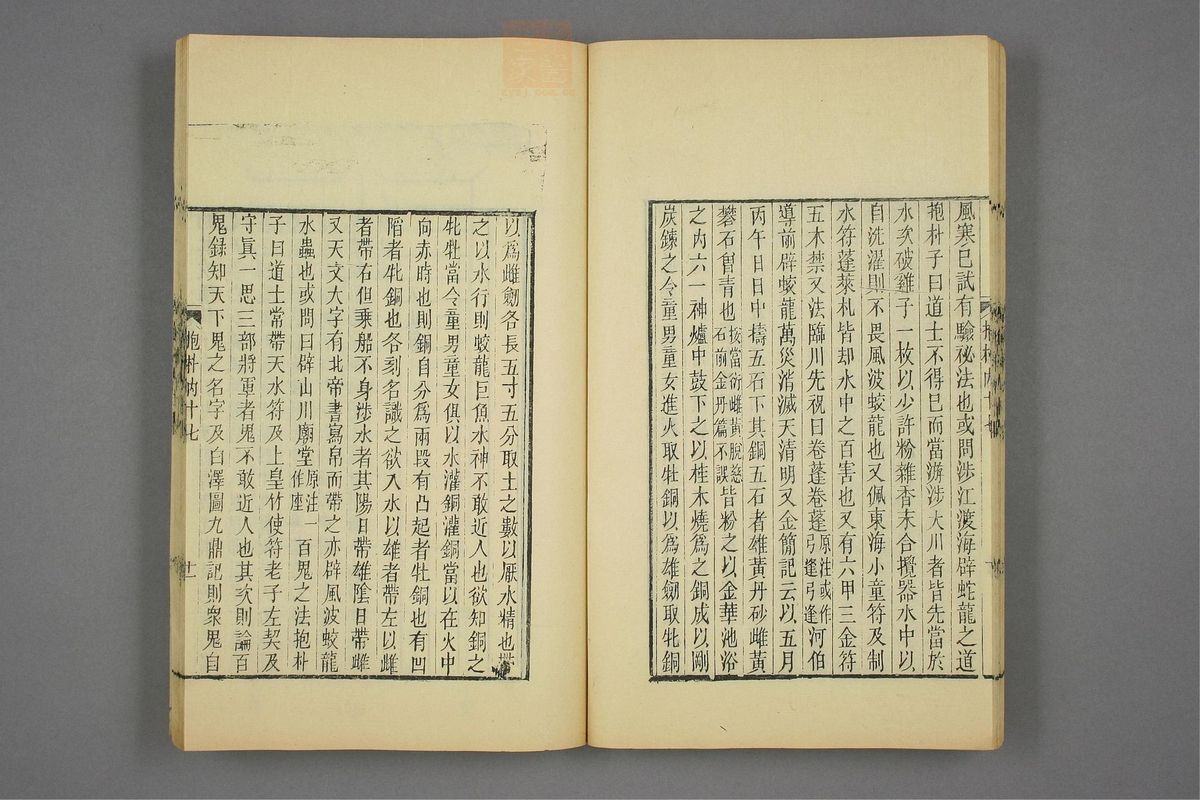 風寒已試有驗祕法也或問涉江渡海辟蛇龍之道
抱朴子曰道士不得已而當游涉大川者皆先當於
水次破雞子一枚以少許粉雜香末合攪器水中以
自洗濯則不畏風波蛟龍也又佩東海小童符及制
水符蓬萊札皆却水中之百害也又有六甲三金符
五木禁又法臨川先祝曰卷蓬卷蓬原注或作弓逢弓逢河伯
導前辟蛟龍萬災消滅天清明又金簡記云以五月
丙午日日中擣五石下其銅五石者雄黃丹砂雌黃
礬石曾青也按當衍雌黃脫慈石前金丹篇不誤皆粉之以金華池浴
之內六一神爐中鼓下之以桂木燒爲之銅成以剛
炭鍊之令童男童女進火取牡銅以爲雄劒取牝銅
以爲雌劒各長五寸五分取土之數以厭水精也帶
之以水行則蛟龍巨魚水神不敢近人也欲知銅之
牝牡當令童男童女俱以水灌銅灌銅當以在火中
向赤時也則銅自分爲兩段有凸起者牡銅也有凹
陷者牝銅也各刻名識之欲入水以雄者帶左以雌
者帶右但乘船不身涉水者其陽日帶雄陰日帶雌
又天文大字有北帝書寫帛而帶之亦辟風波蛟龍
水蟲也或問曰辟山川廟堂原注一作座百鬼之法抱朴
子曰道士常帶天水符及上皇竹使符老子左契及
守眞一思三部將軍者鬼不敢近人也其次則論百
鬼錄知天下鬼之名字及白澤圖九鼎記則衆鬼自
抱朴內十七
十一